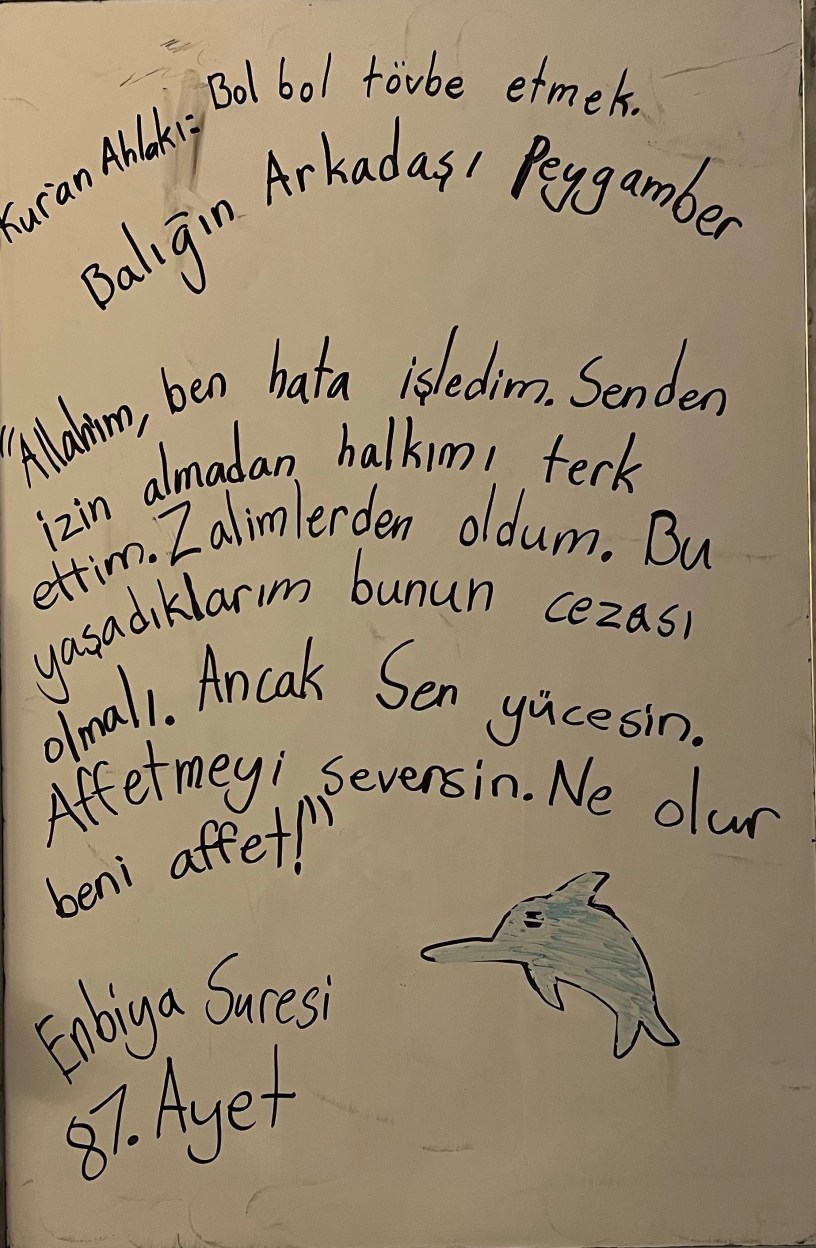 Kur'an Ahlakı: Bol bol tövbe etmek.
Balığın Arkadaşı Peygamber
"Allahım, ben hata işledim. Senden
izin almadan halkımı terk
ettim. Zalimlerden oldum. Bu
yaşadıklarım bunun cezası
olmalı. Ancak Sen yücesin.
Affetmeyi seversin. Ne olur
beni affet!"
Enbiya Suresi
87. Ayet